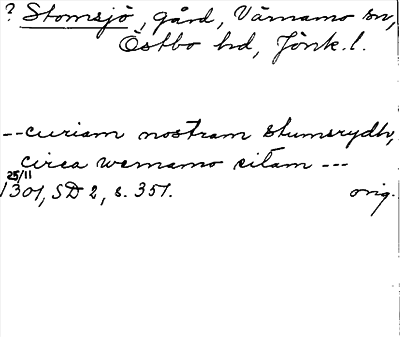 ? Stomsjö, gård, Värnamo sn,
Östbo hd, Jönk. l.
--curiam nostram stumsrydh,
circa wernamo sitam ---
25/11
1301, SD 2, s. 351. orig.